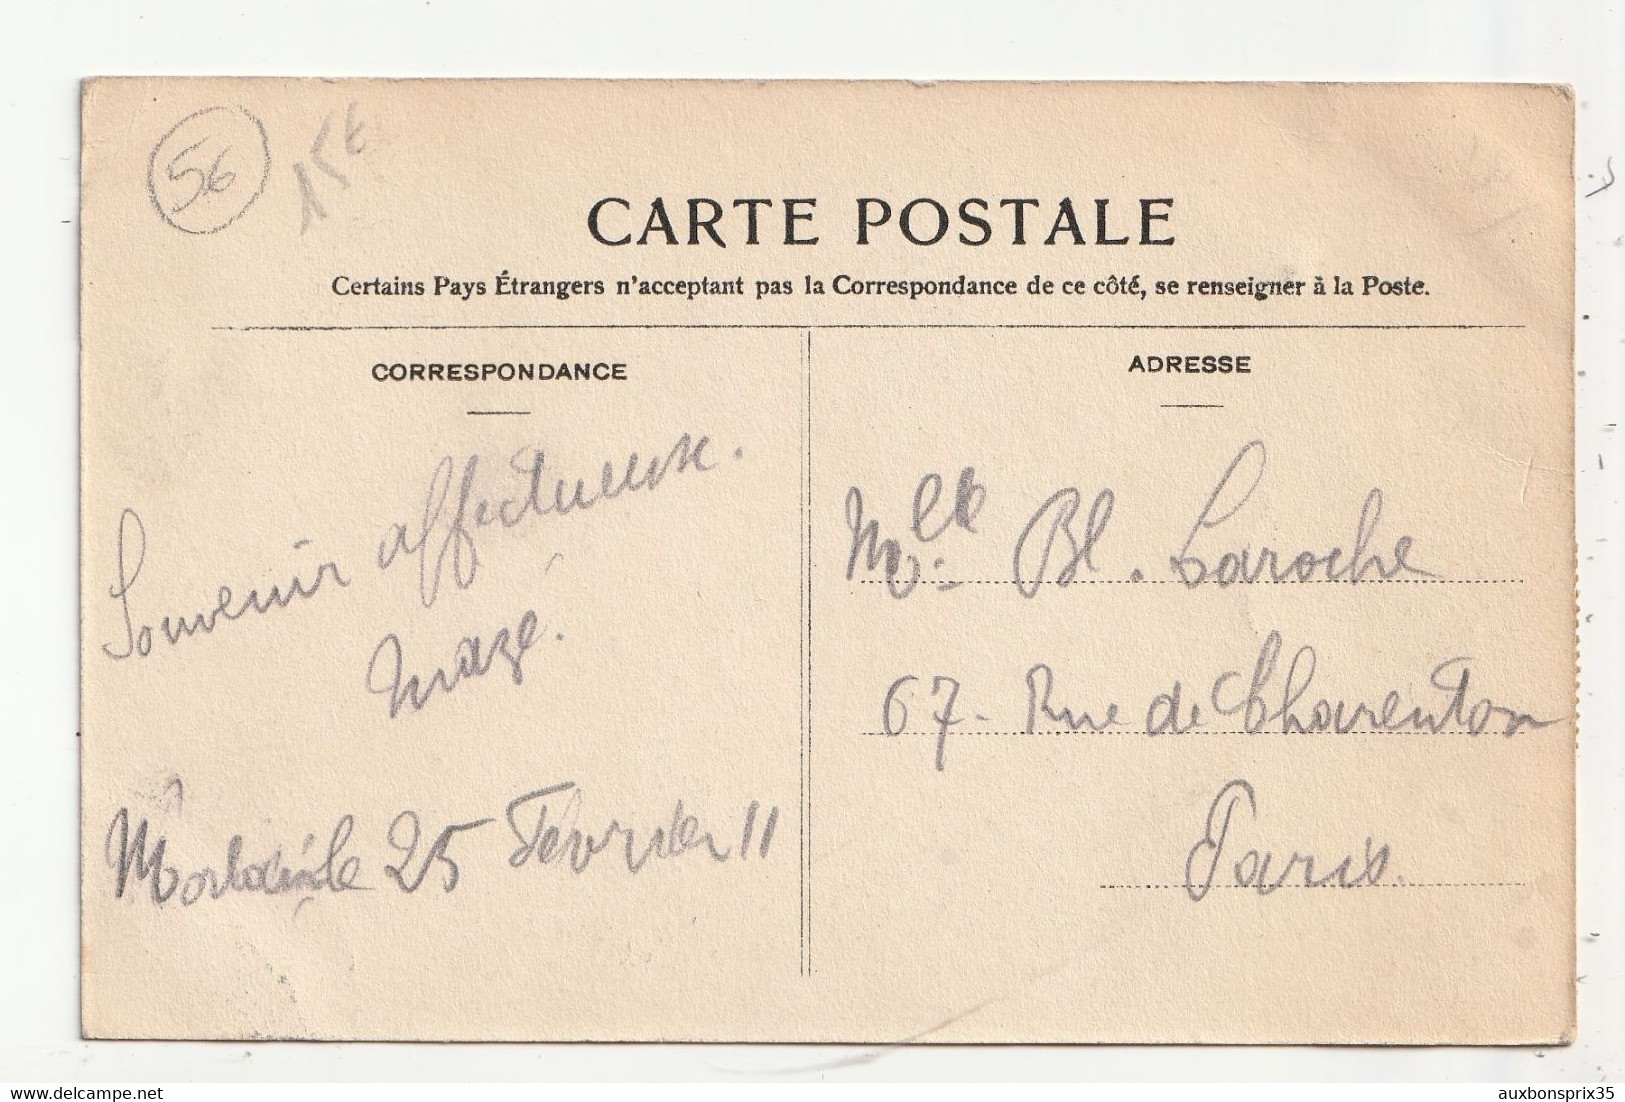 56
15€
CARTE POSTALE
Certains Pays Étrangers n'acceptant pas la Correspondance de ce côté, se renseigner à la Poste.
CORRESPONDANCE
Souvenir affectueux.
Mazé.
25 Février 11
ADRESSE
Mlle Bl. Laroche
67 - Rue de Charenton
Paris.
auxbonsprix35